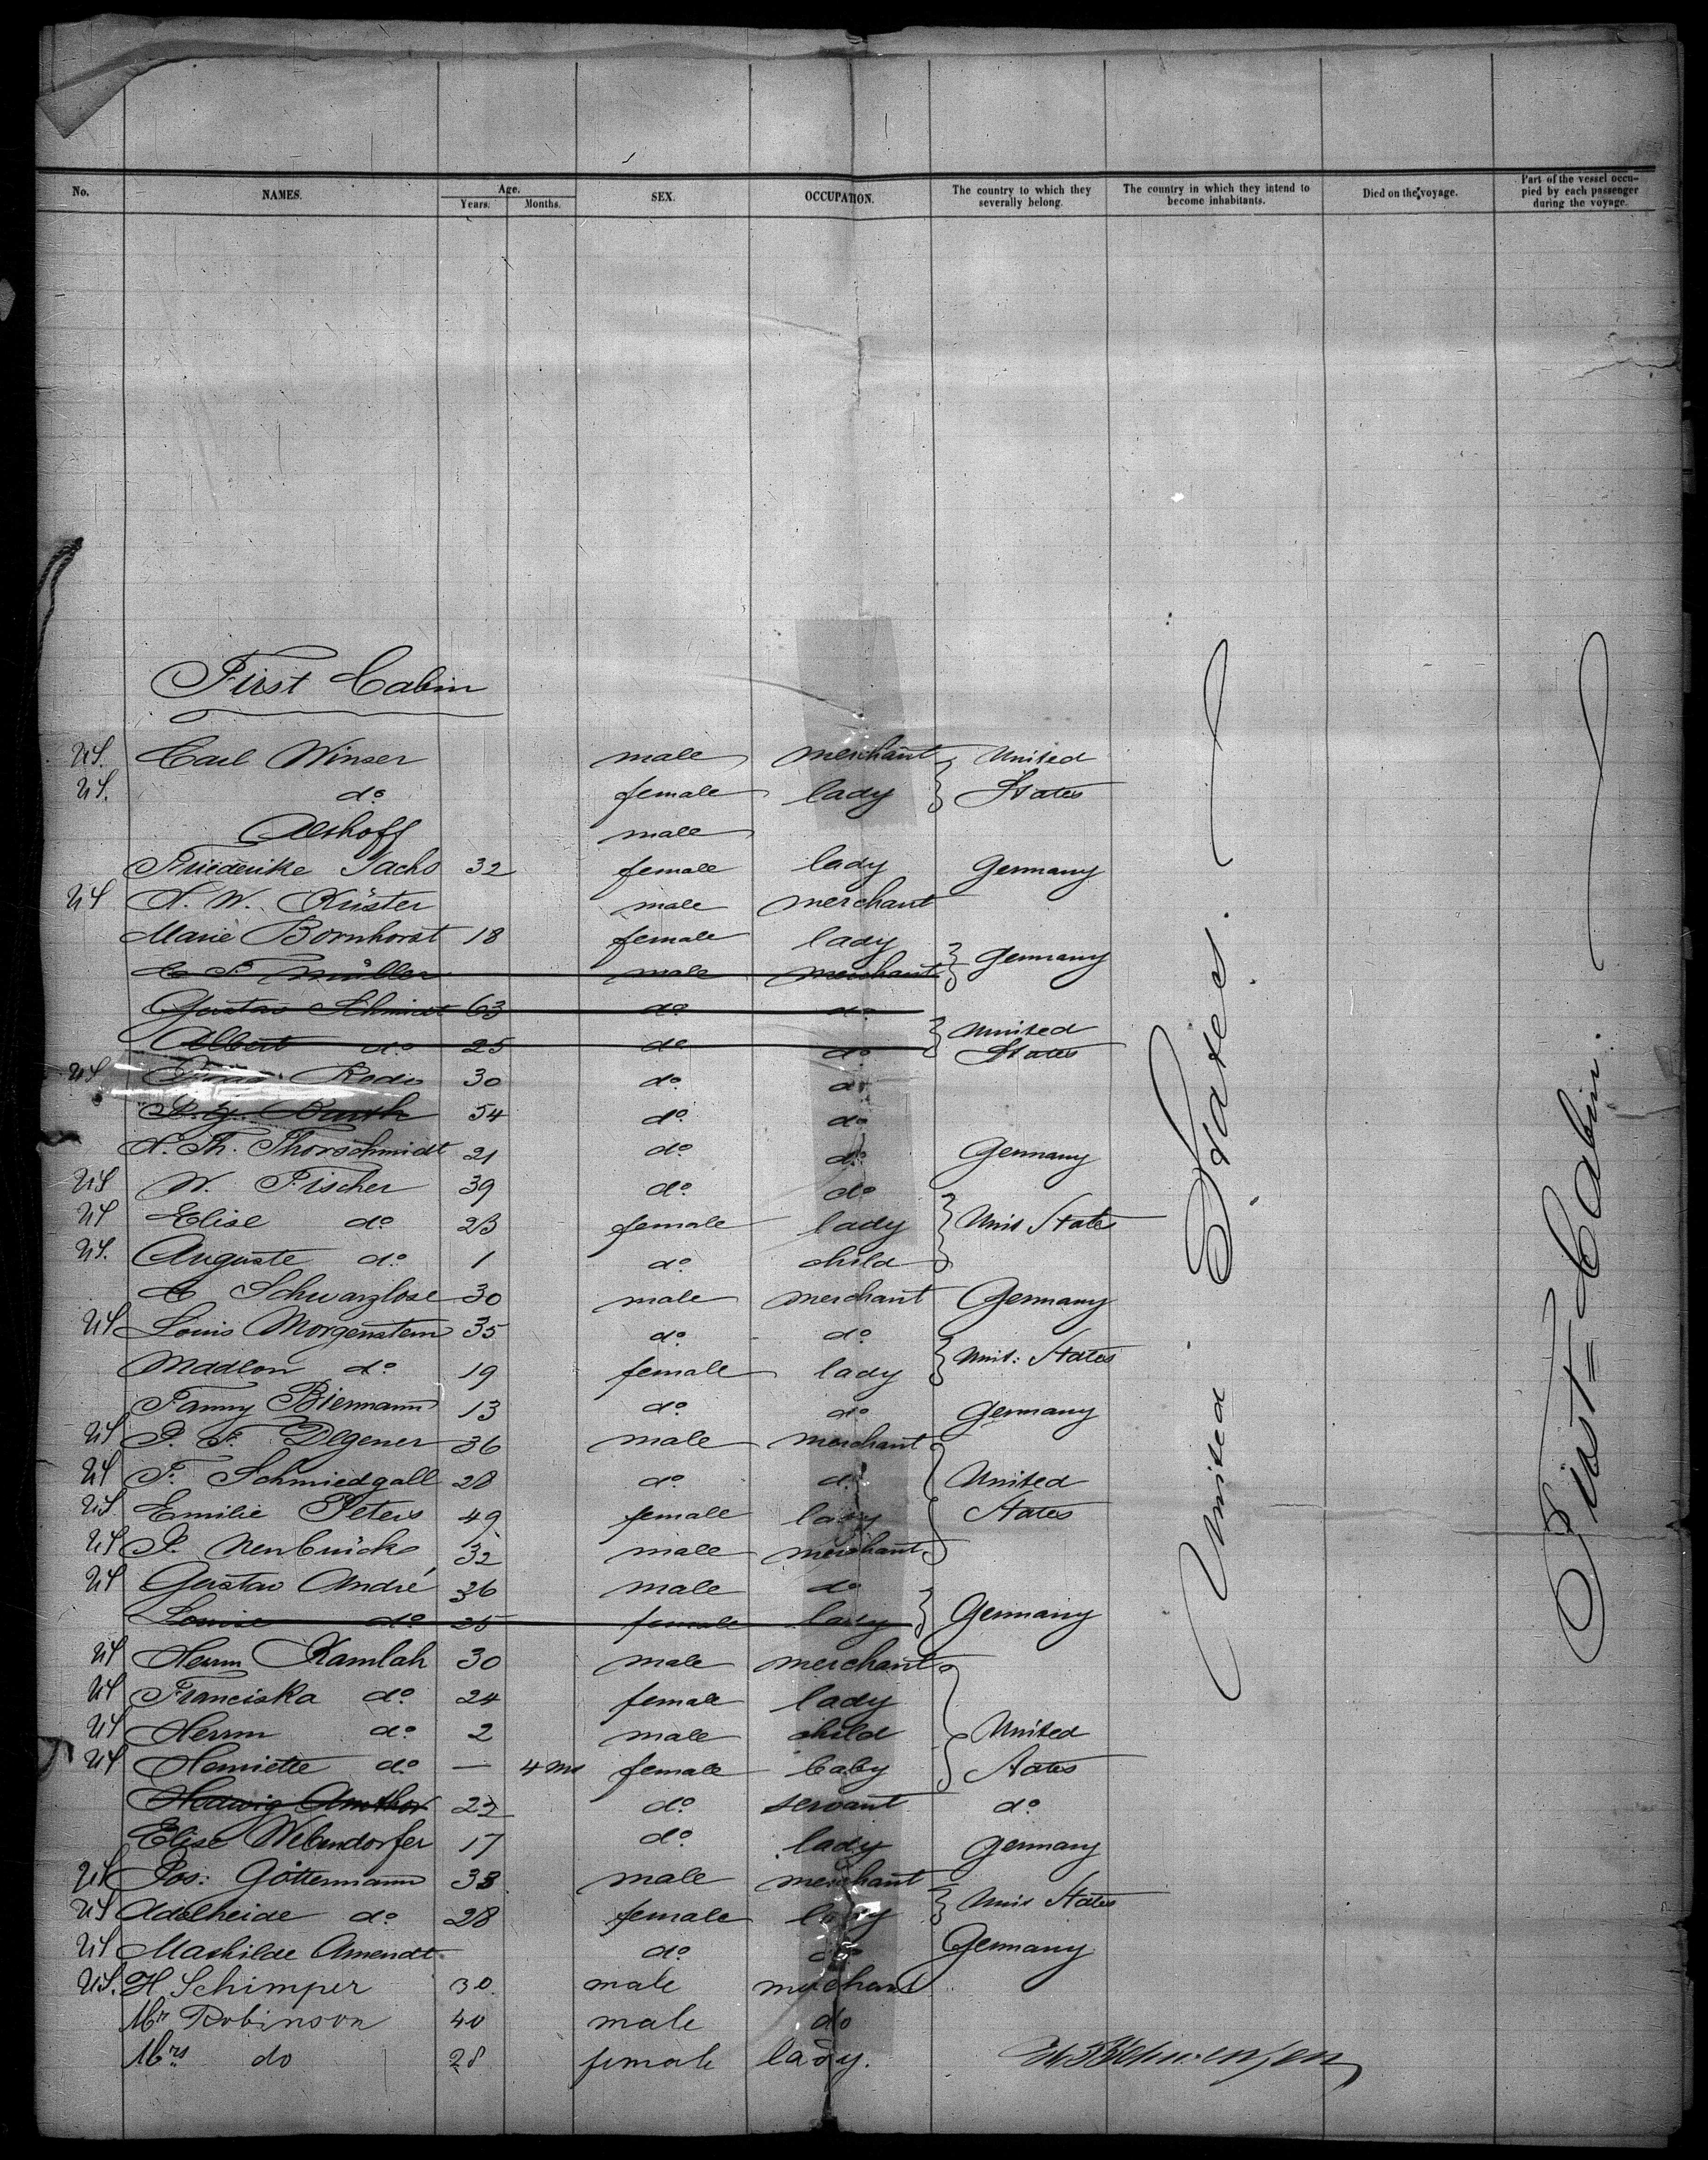 No. NAMES. Age. Years. Months. SEX. OCCUPATION. The country to which they severally belong. The country in which they intend to become inhabitants. Died on the voyage. Part of the vessel occupied by each passenger during the voyage.
First Cabin
US. Carl Winser male merchant United
US. do female lady States
Alshoff male
Friederike Sachs 32 female lady Germany
US N. W. Küster male merchant
Marie Bornhorst 18 female lady
C F Müller male merchant Germany
Gustav Schmidt 63 do do
Albert do 25 do do United States
US Rodes 30 do do
54 do do
N. Th. Thorschmidt 21 do do Germany
US W. Fischer 39 do do
US Elise do 23 female lady Unit States
US. Auguste do 1 do child
C Schwarzlose 30 male merchant Germany
US Louis Morgenstern 35 do do
Madlon do 19 female lady Unit: States
Fanny Biermann 13 do do Germany
US P. F. Degener 36 male merchant
US F. Schmiedgall 28 do do United
US. Emilie Peters 49 female lady States
US 32 male merchant
US Gustav André 36 male do
Louise do 25 female lady Germany
US Herm Kamlah 30 male merchant
US Franciska do 24 female lady
US Herm do 2 male child United
US Henriette do — 4 ms female baby States
Hedwig Amthor 22 do servant do
Elise Webendorfer 17 do lady Germany
US Jos: Göttermann 33 male merchant
US Adelheide do 28 female lady Unit States
US Mathilde Amendt do do Germany
US. H Schimper 30. male merchant
Mr Robinson 40 male do
Mrs do 28 female lady.
United States.
First=Cabin.